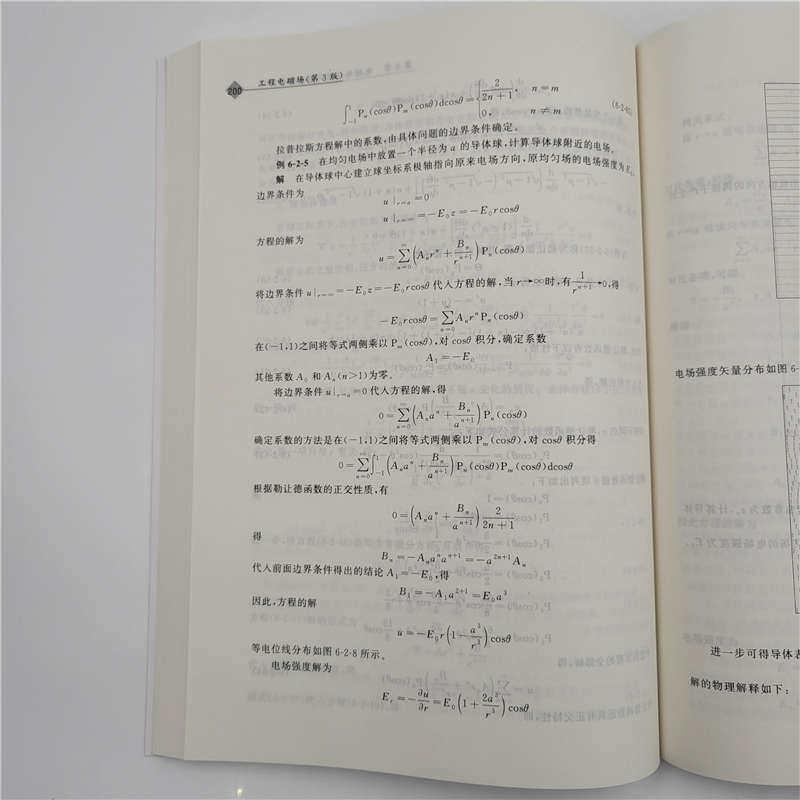 200 工程电磁场(第3版)
∫₋₁¹ Pₙ(cosθ)Pₘ(cosθ)dcosθ = { 2/(2n+1), n=m
0, n≠m
拉普拉斯方程解中的系数,由具体问题的边界条件确定。
例 6-2-5 在均匀电场中放置一个半径为 a 的导体球,计算导体球附近的电场。
解 在导体球中心建立球坐标系极轴指向原来电场方向,原均匀场的电场强度为 E₀,
边界条件为
u|ᵣ₌ₐ=0
u|ᵣ₌∞=−E₀z=−E₀rcosθ
方程的解为
u=∑ₙ₌₀^∞(Aₙrⁿ+Bₙ/rⁿ⁺¹)Pₙ(cosθ)
将边界条件 u|ᵣ₌∞=−E₀z=−E₀rcosθ 代入方程的解,当 r→∞时,有 1/rⁿ⁺¹→0,得
−E₀rcosθ=∑ₙ₌₀^∞AₙrⁿPₙ(cosθ)
在(−1,1)之间将等式两侧乘以 Pₘ(cosθ),对 cosθ 积分,确定系数
A₁=−E₀
其他系数 A₀ 和 Aₙ(n>1)为零。
将边界条件 u|ᵣ₌ₐ=0 代入方程的解,得
0=∑ₙ₌₀^∞(Aₙaⁿ+Bₙ/aⁿ⁺¹)Pₙ(cosθ)
确定系数的方法是在(−1,1)之间将等式两侧乘以 Pₘ(cosθ),对 cosθ 积分得
0=∑ₙ₌₀^∞∫₋₁¹(Aₙaⁿ+Bₙ/aⁿ⁺¹)Pₙ(cosθ)Pₘ(cosθ)dcosθ
根据勒让德函数的正交性质,有
0=(Aₙaⁿ+Bₙ/aⁿ⁺¹)2/(2n+1)
得
Bₙ=−Aₙaⁿaⁿ⁺¹=−a²ⁿ⁺¹Aₙ
代入前面边界条件得出的结论 A₁=−E₀,得
B₁=−A₁a²⁺¹=E₀a³
因此,方程的解
u=−E₀r(1−a³/r³)cosθ
等电位线分布如图 6-2-8 所示。
电场强度解为
Eᵣ=−∂u/∂r=E₀(1+2a³/r³)cosθ
电场强度矢量分布如图 6-
进一步可得导体表
解的物理解释如下: